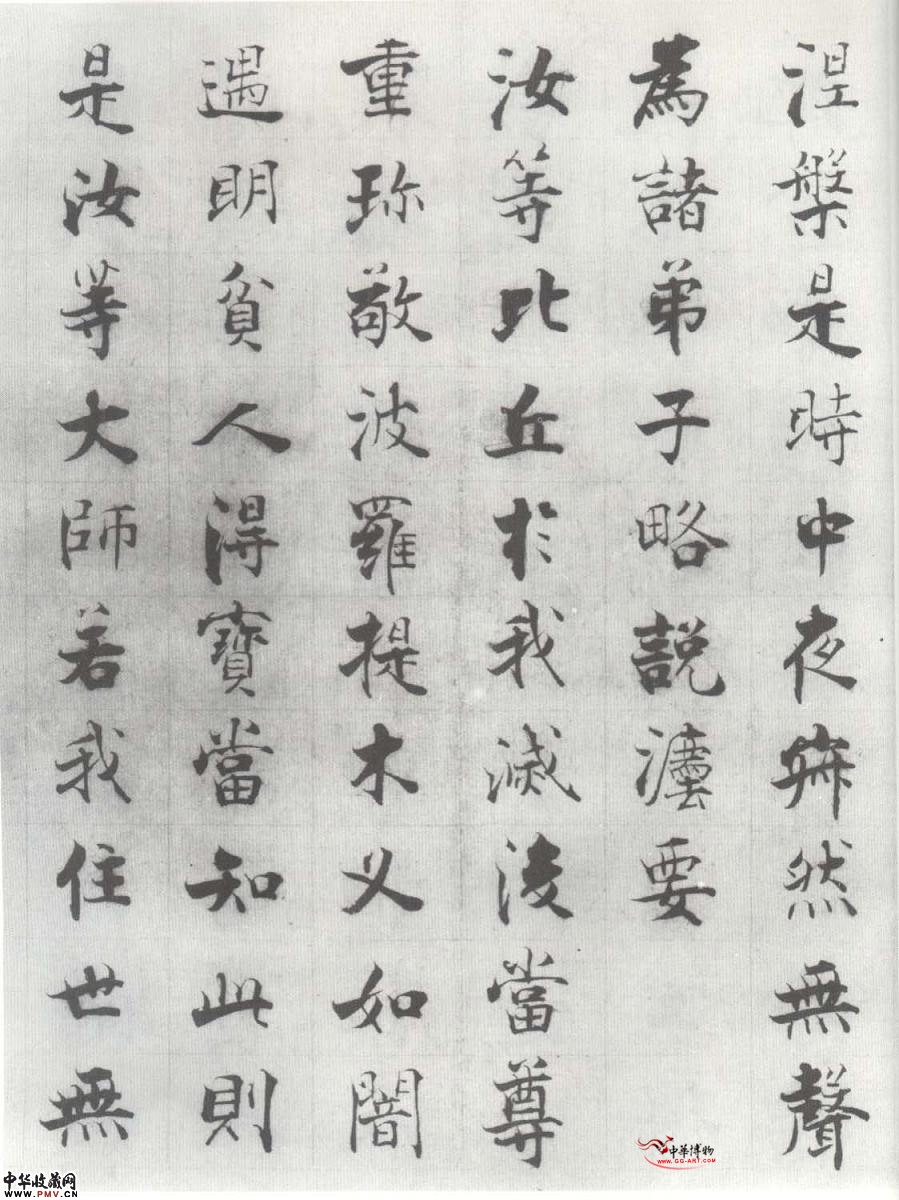 涅槃是時中夜寂然無聲
為諸弟子略說灋要
汝等比丘於我滅後當尊
重珎敬波羅提木叉如闇
遇明貧人得寶當知此則
是汝等大師若我住世無
中華博物
WWW.GG-ART.COM
中华收藏网
WWW.PMV.CN